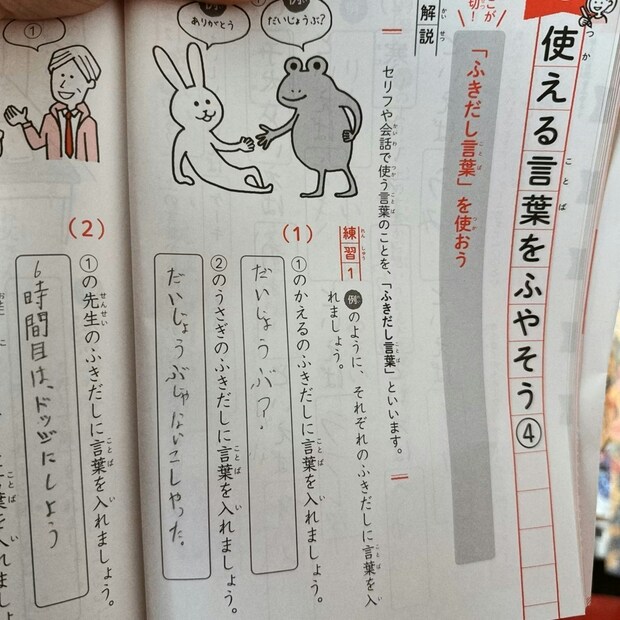 使える言葉をふやそう④
「ふきだし言葉」を使おう
解説
セリフや会話で使う言葉のことを、「ふきだし言葉」といいます。
だいじょうぶ?
ありがとう
練習1
例のように、それぞれのふきだしに言葉を入
れましょう。
(1)
①のかえるのふきだしに言葉を入れましょう。
だいじょうぶ?
②のうさぎのふきだしに言葉を入れましょう。
だいじょうぶじゃないこしやった。
①
(2)
①の先生のふきだしに言葉を入れましょう。
6時間目は、ドッヂにしよう